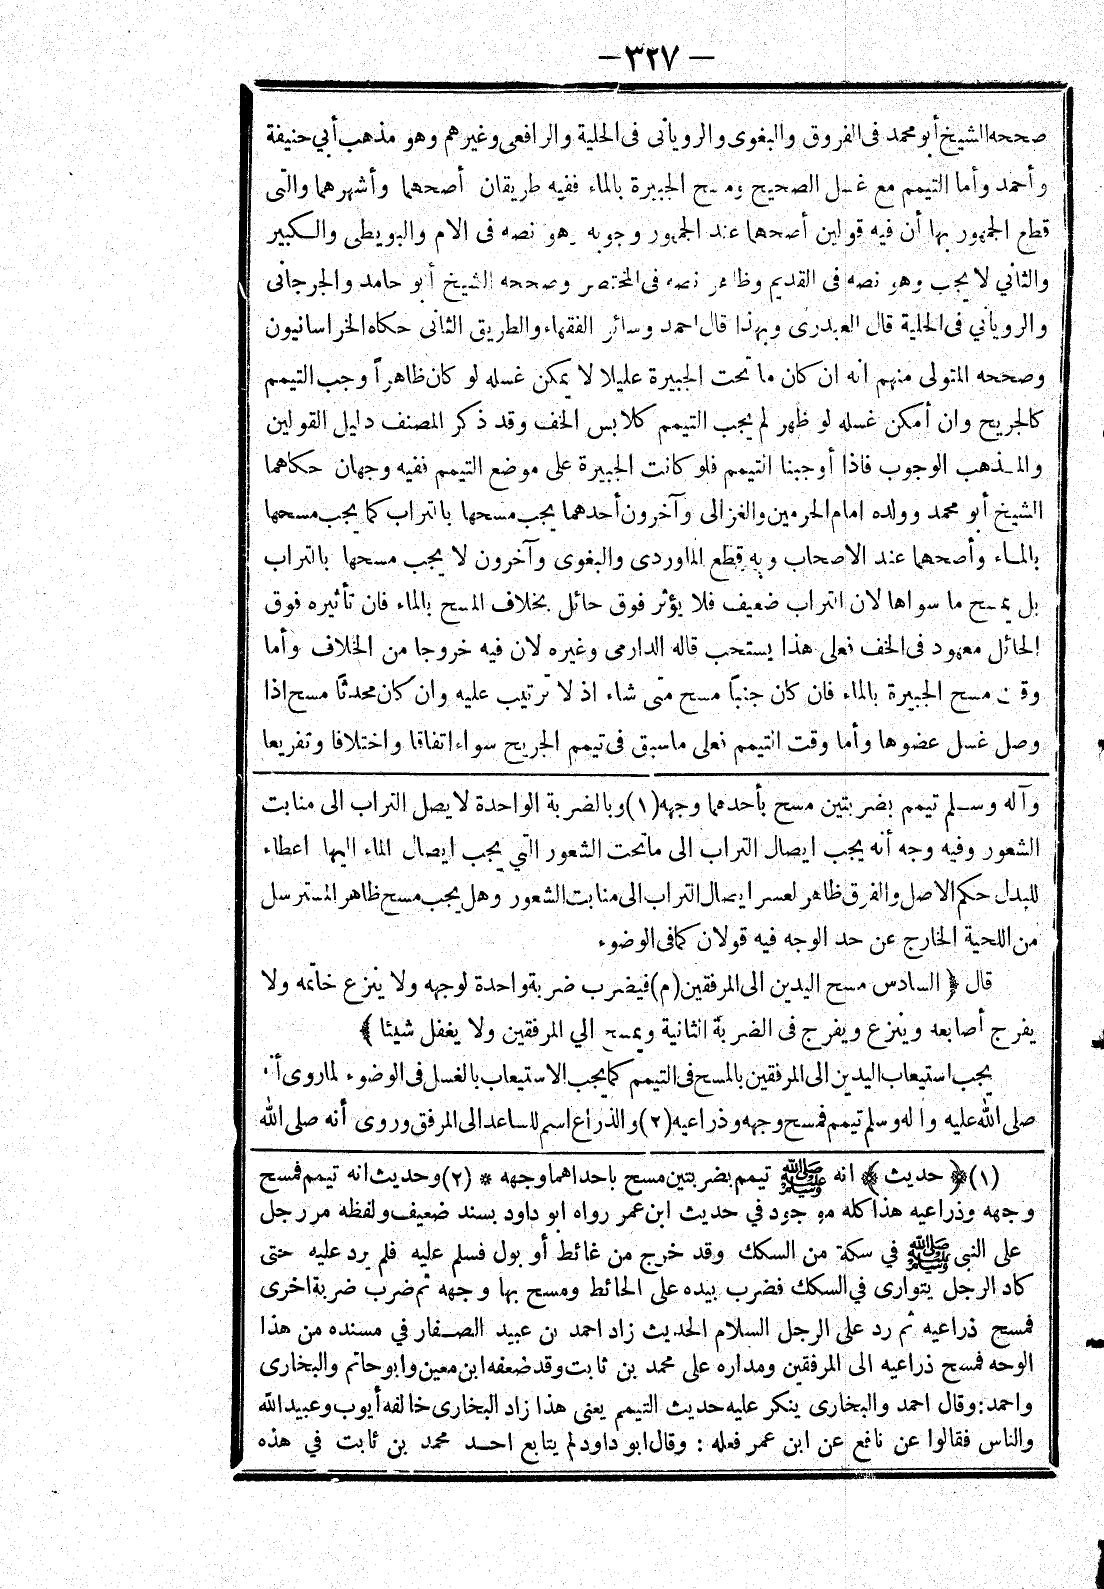 — ٣٢٧ —
صححه الشيخ أبو محمد فى الفروق والبغوى والرويأنى فى الحلية والرافعى وغيرهم وهو مذهب أبي حنيفة
وأحمد وأما التيمم مع غسل الصحيح ومسح الجبيرة بالماء ففيه طريقان أصحهما وأشهرهما والتى
قطع الجمهور بها أن فيه قولين أصحهما عند الجمهور وجوبه وهو نصه فى الام والبويطى والكبير
والثاني لا يجب وهو نصه فى القديم وظاهر نصه فى المختصر وصححه الشيخ أبو حامد والجرجانى
والرويأني فى الحلية قال العبدرى وبهذا قال احمد وسائر الفقهاء والطريق الثانى حكاه الخراسانيون
وصححه المتولى منهم انه ان كان ما تحت الجبيرة عليلا لا يمكن غسله لو كان ظاهراً وجب التيمم
كالجريح وان أمكن غسله لو ظهر لم يجب التيمم كلابس الخف وقد ذكر المصنف دليل القولين
والمذهب الوجوب فاذا أوجبنا التيمم فلو كانت الجبيرة على موضع التيمم ففيه وجهان حكاهما
الشيخ أبو محمد وولده امام الحرمين والغزالى وآخرون أحدهما يجب مسحها بالتراب كما يجب مسحها
بالماء وأصحهما عند الاصحاب وبه قطع الماوردى والبغوى وآخرون لا يجب مسحها بالتراب
بل يمسح ما سواها لان التراب ضعيف فلا يؤثر فوق حائل بخلاف المسح بالماء فان تأثيره فوق
الحائل معهود فى الخف فعلى هذا يستحب قاله الدارمى وغيره لان فيه خروجا من الخلاف وأما
وقت مسح الجبيرة بالماء فان كان جنباً مسح متى شاء اذ لا ترتيب عليه وان كان محدثاً مسح اذا
وصل غسل عضوها وأما وقت التيمم فعلى ما سبق فى تيمم الجريح سواء اتفاقا واختلافا وتفريعا
وآله وسلم تيمم بضربتين مسح بأحدهما وجهه (١) وبالضربة الواحدة لا يصل التراب الى منابت
الشعور وفيه وجه أنه يجب ايصال التراب الى ما تحت الشعور التي يجب ايصال الماء اليها اعطاء
للبدل حكم الاصل والفرق ظاهر لعسر ايصال التراب الى منابت الشعور وهل يجب مسح ظاهر المسترسل
من اللحية الخارج عن حد الوجه فيه قولان كما فى الوضوء
قال ﴿ السادس مسح اليدين الى المرفقين (م) فيضرب ضربة واحدة لوجهه ولا ينزع خاتمه ولا
يفرج أصابعه وينزع ويفرج فى الضربة الثانية ويمسح الي المرفقين ولا يغفل شيئا ﴾
يجب استيعاب اليدين الى المرفقين بالمسح فى التيمم كما يجب الاستيعاب بالغسل فى الوضوء لما روى أنه
صلى الله عليه واله وسلم تيمم فمسح وجهه وذراعيه (٢) والذراع اسم للساعد الى المرفق وروى أنه صلى الله
(١) ﴿ حديث ﴾ انه ﷺ تيمم بضربتين مسح باحداهما وجهه * (٢) وحديث انه تيمم فمسح
وجهه وذراعيه هذا كله موجود في حديث ابن عمر رواه ابو داود بسند ضعيف ولفظه مر رجل
على النبي ﷺ في سكة من السكك وقد خرج من غائط أو بول فسلم عليه فلم يرد عليه حتى
كاد الرجل يتوارى في السكك فضرب بيده على الحائط ومسح بها وجهه ثم ضرب ضربة اخرى
فمسح ذراعيه ثم رد على الرجل السلام الحديث زاد احمد بن عبيد الصفار في مسنده من هذا
الوجه فمسح ذراعيه الى المرفقين ومداره على محمد بن ثابت وقد ضعفه ابن معين وابو حاتم والبخارى
واحمد : وقال احمد والبخارى ينكر عليه حديث التيمم يعنى هذا زاد البخارى خالفه أيوب وعبيد الله
والناس فقالوا عن نافع عن ابن عمر فعله : وقال ابو داود لم يتابع احد محمد بن ثابت في هذه